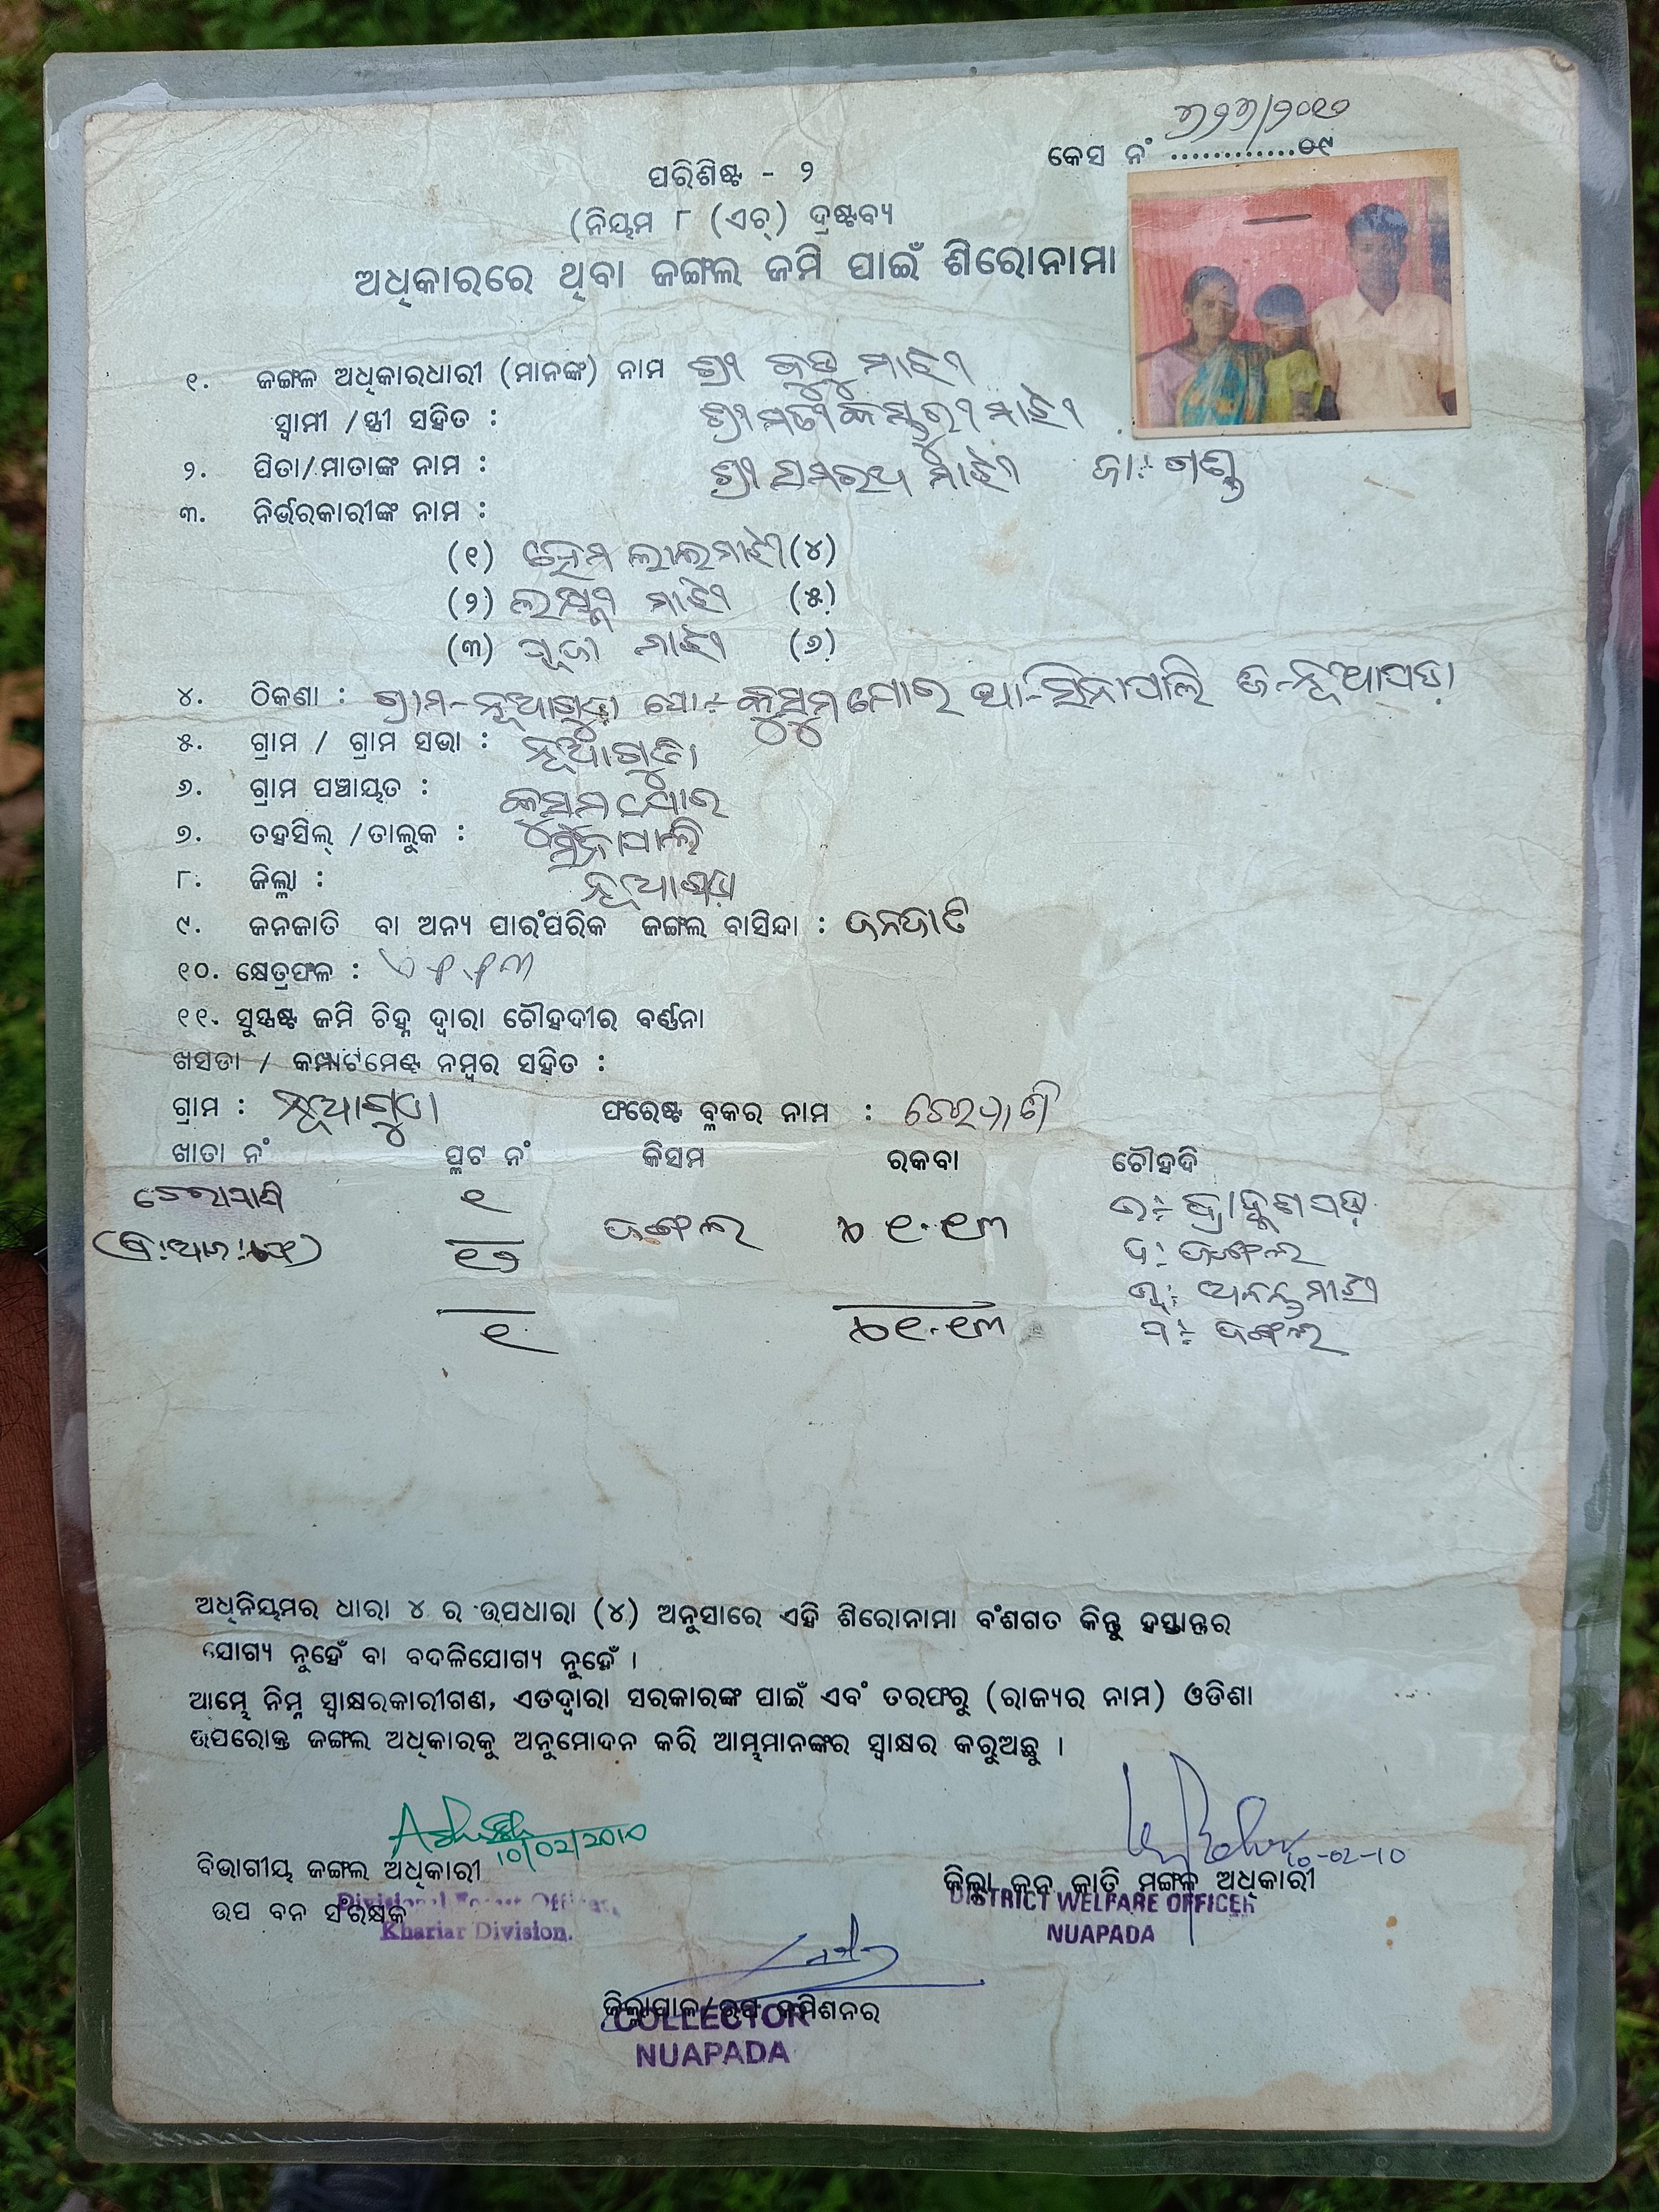 ୬୨୬/୨୦୧୦
କେସ ନଂ ............୦୯
ପରିଶିଷ୍ଟ - ୨
(ନିୟମ ୮ (ଏଚ୍) ଦ୍ରଷ୍ଟବ୍ୟ
ଅଧିକାରରେ ଥିବା ଜଙ୍ଗଲ ଜମି ପାଇଁ ଶିରୋନାମା
୧. ଜଙ୍ଗଳ ଅଧିକାରଧାରୀ (ମାନଙ୍କ) ନାମ ଶ୍ରୀ ମାଝୀ
ସ୍ୱାମୀ /ସ୍ତ୍ରୀ ସହିତ : ଶ୍ରୀମତୀ କସ୍ତୁରୀ ମାଝୀ
୨. ପିତା/ମାତାଙ୍କ ନାମ : ଶ୍ରୀ ସମରଥ ମାଝୀ ଜା: ଗଣ୍ଡ
୩. ନିର୍ଭରକାରୀଙ୍କ ନାମ :
(୧) ହେମ ଲାଲ ମାଝୀ (୪)
(୨) ମାଝୀ (୫)
(୩) ମାଝୀ (୬)
୪. ଠିକଣା : ଗ୍ରାମ-ନୂଆଗୁଡା ପୋ:- କୁସୁମଯୋର ଥା-ସିନାପାଲି ଜି-ନୂଆପଡା
୫. ଗ୍ରାମ / ଗ୍ରାମ ସଭା : ନୂଆଗୁଡା
୬. ଗ୍ରାମ ପଞ୍ଚାୟତ : କୁସୁମଯୋର
୭. ତହସିଲ୍ /ତାଲୁକ : ସିନାପାଲି
୮. ଜିଲ୍ଲା : ନୂଆପଡା
୯. ଜନଜାତି ବା ଅନ୍ୟ ପାରଂପରିକ ଜଙ୍ଗଲ ବାସିନ୍ଦା : ଜନଜାତି
୧୦. କ୍ଷେତ୍ରଫଳ : ଏ ୧.୧୩
୧୧. ସୁସ୍ପଷ୍ଟ ଜମି ଚିହ୍ନ ଦ୍ୱାରା ଚୌହଦୀର ବର୍ଣ୍ଣନା
ଖସଡା / କମ୍ପାର୍ଟମେଣ୍ଟ ନମ୍ବର ସହିତ :
ଗ୍ରାମ : ନୂଆଗୁଡା ଫରେଷ୍ଟ ବ୍ଳକର ନାମ :
ଖାତା ନଂ ପ୍ଳଟ ନଂ କିସମ ରକବା ଚୌହଦି
୧ ଜଙ୍ଗଲ ଏ ୧.୧୩ ଉ:-
୧୨ ଦ: ଜଙ୍ଗଲ
ପୂ:- ଅନନ୍ତ ମାଝୀ
୧ ଏ ୧.୧୩ ପ:- ଜଙ୍ଗଲ
ଅଧିନିୟମର ଧାରା ୪ ର ଉପଧାରା (୪) ଅନୁସାରେ ଏହି ଶିରୋନାମା ବଂଶଗତ କିନ୍ତୁ ହସ୍ତାନ୍ତର
ଯୋଗ୍ୟ ନୁହେଁ ବା ବଦଳିଯୋଗ୍ୟ ନୁହେଁ ।
ଆମ୍ଭେ ନିମ୍ନ ସ୍ୱାକ୍ଷରକାରୀଗଣ, ଏତଦ୍ୱାରା ସରକାରଙ୍କ ପାଇଁ ଏବଂ ତରଫରୁ (ରାଜ୍ୟର ନାମ) ଓଡିଶା
ଉପରୋକ୍ତ ଜଙ୍ଗଲ ଅଧିକାରକୁ ଅନୁମୋଦନ କରି ଆମ୍ଭମାନଙ୍କର ସ୍ୱାକ୍ଷର କରୁଅଛୁ ।
10/02/2010 10-02-10
ବିଭାଗୀୟ ଜଙ୍ଗଲ ଅଧିକାରୀ ଜିଲ୍ଲା ଜନ ଜାତି ମଙ୍ଗଳ ଅଧିକାରୀ
Divisional Forest Officer, DISTRICT WELFARE OFFICER
ଉପ ବନ ସଂରକ୍ଷକ
Khariar Division. NUAPADA
ଜିଲ୍ଲାପାଳ/ଉପ କମିଶନର
COLLECTOR
NUAPADA